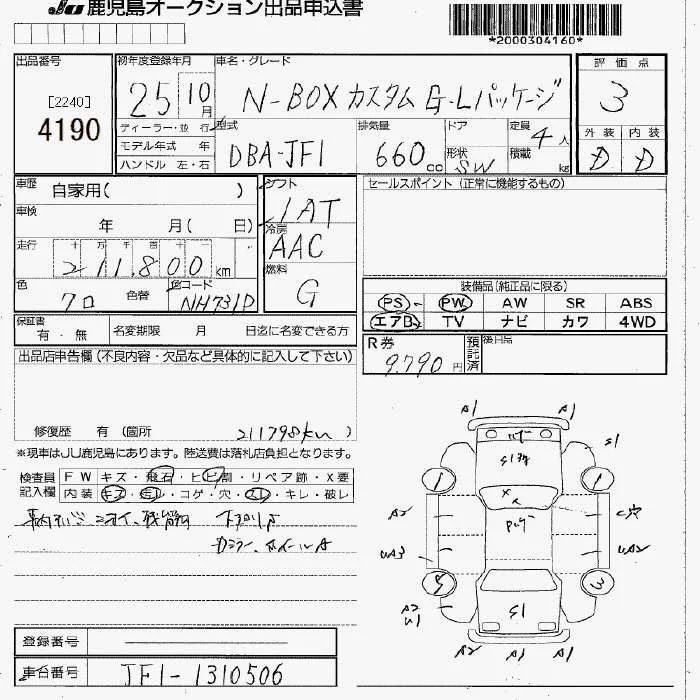 JU 鹿児島オークション出品申込書
*2000304160*
出品番号
[2240]
4190
初年度登録年月
25 10月
車名・グレード
N-BOX カスタム G-Lパッケージ
評価点
3
外装 内装
D D
ディーラー・並行
モデル年式 年
ハンドル 左・右
型式
DBA-JF1
排気量
660 cc
ドア
形状 SW
定員 4 人
積載 kg
車歴 自家用( )
車検 年 月( 日)
走行 十 万 千 百 十 一
211,800 km
色 クロ 色替 色コード NH731P
シフト
IAT
冷房
AAC
燃料
G
セールスポイント (正常に機能するもの)
装備品(純正品に限る)
PS PW AW SR ABS
エアB TV ナビ カワ 4WD
保証書
有・無
名変期限 月 日迄に名変できる方
R券 9,790 円
預託済
後日品
出品店申告欄(不良内容・欠品など具体的に記入して下さい)
修復歴 有 (箇所 211798km )
※現車はJU鹿児島にあります。陸送費は落札店負担となります。
検査員
記入欄
FW キズ・飛石・ヒビ割・リペア跡・X要
内装 キズ・コゲ・穴・スレ・キレ・破レ
下廻りS
Dミラー、ホイールA
A1 A1
S1
1 1
A2
C穴
UA3
UA2
3
A2
U1
S1
A2 A1 A1
登録番号
車台番号 JF1-1310506